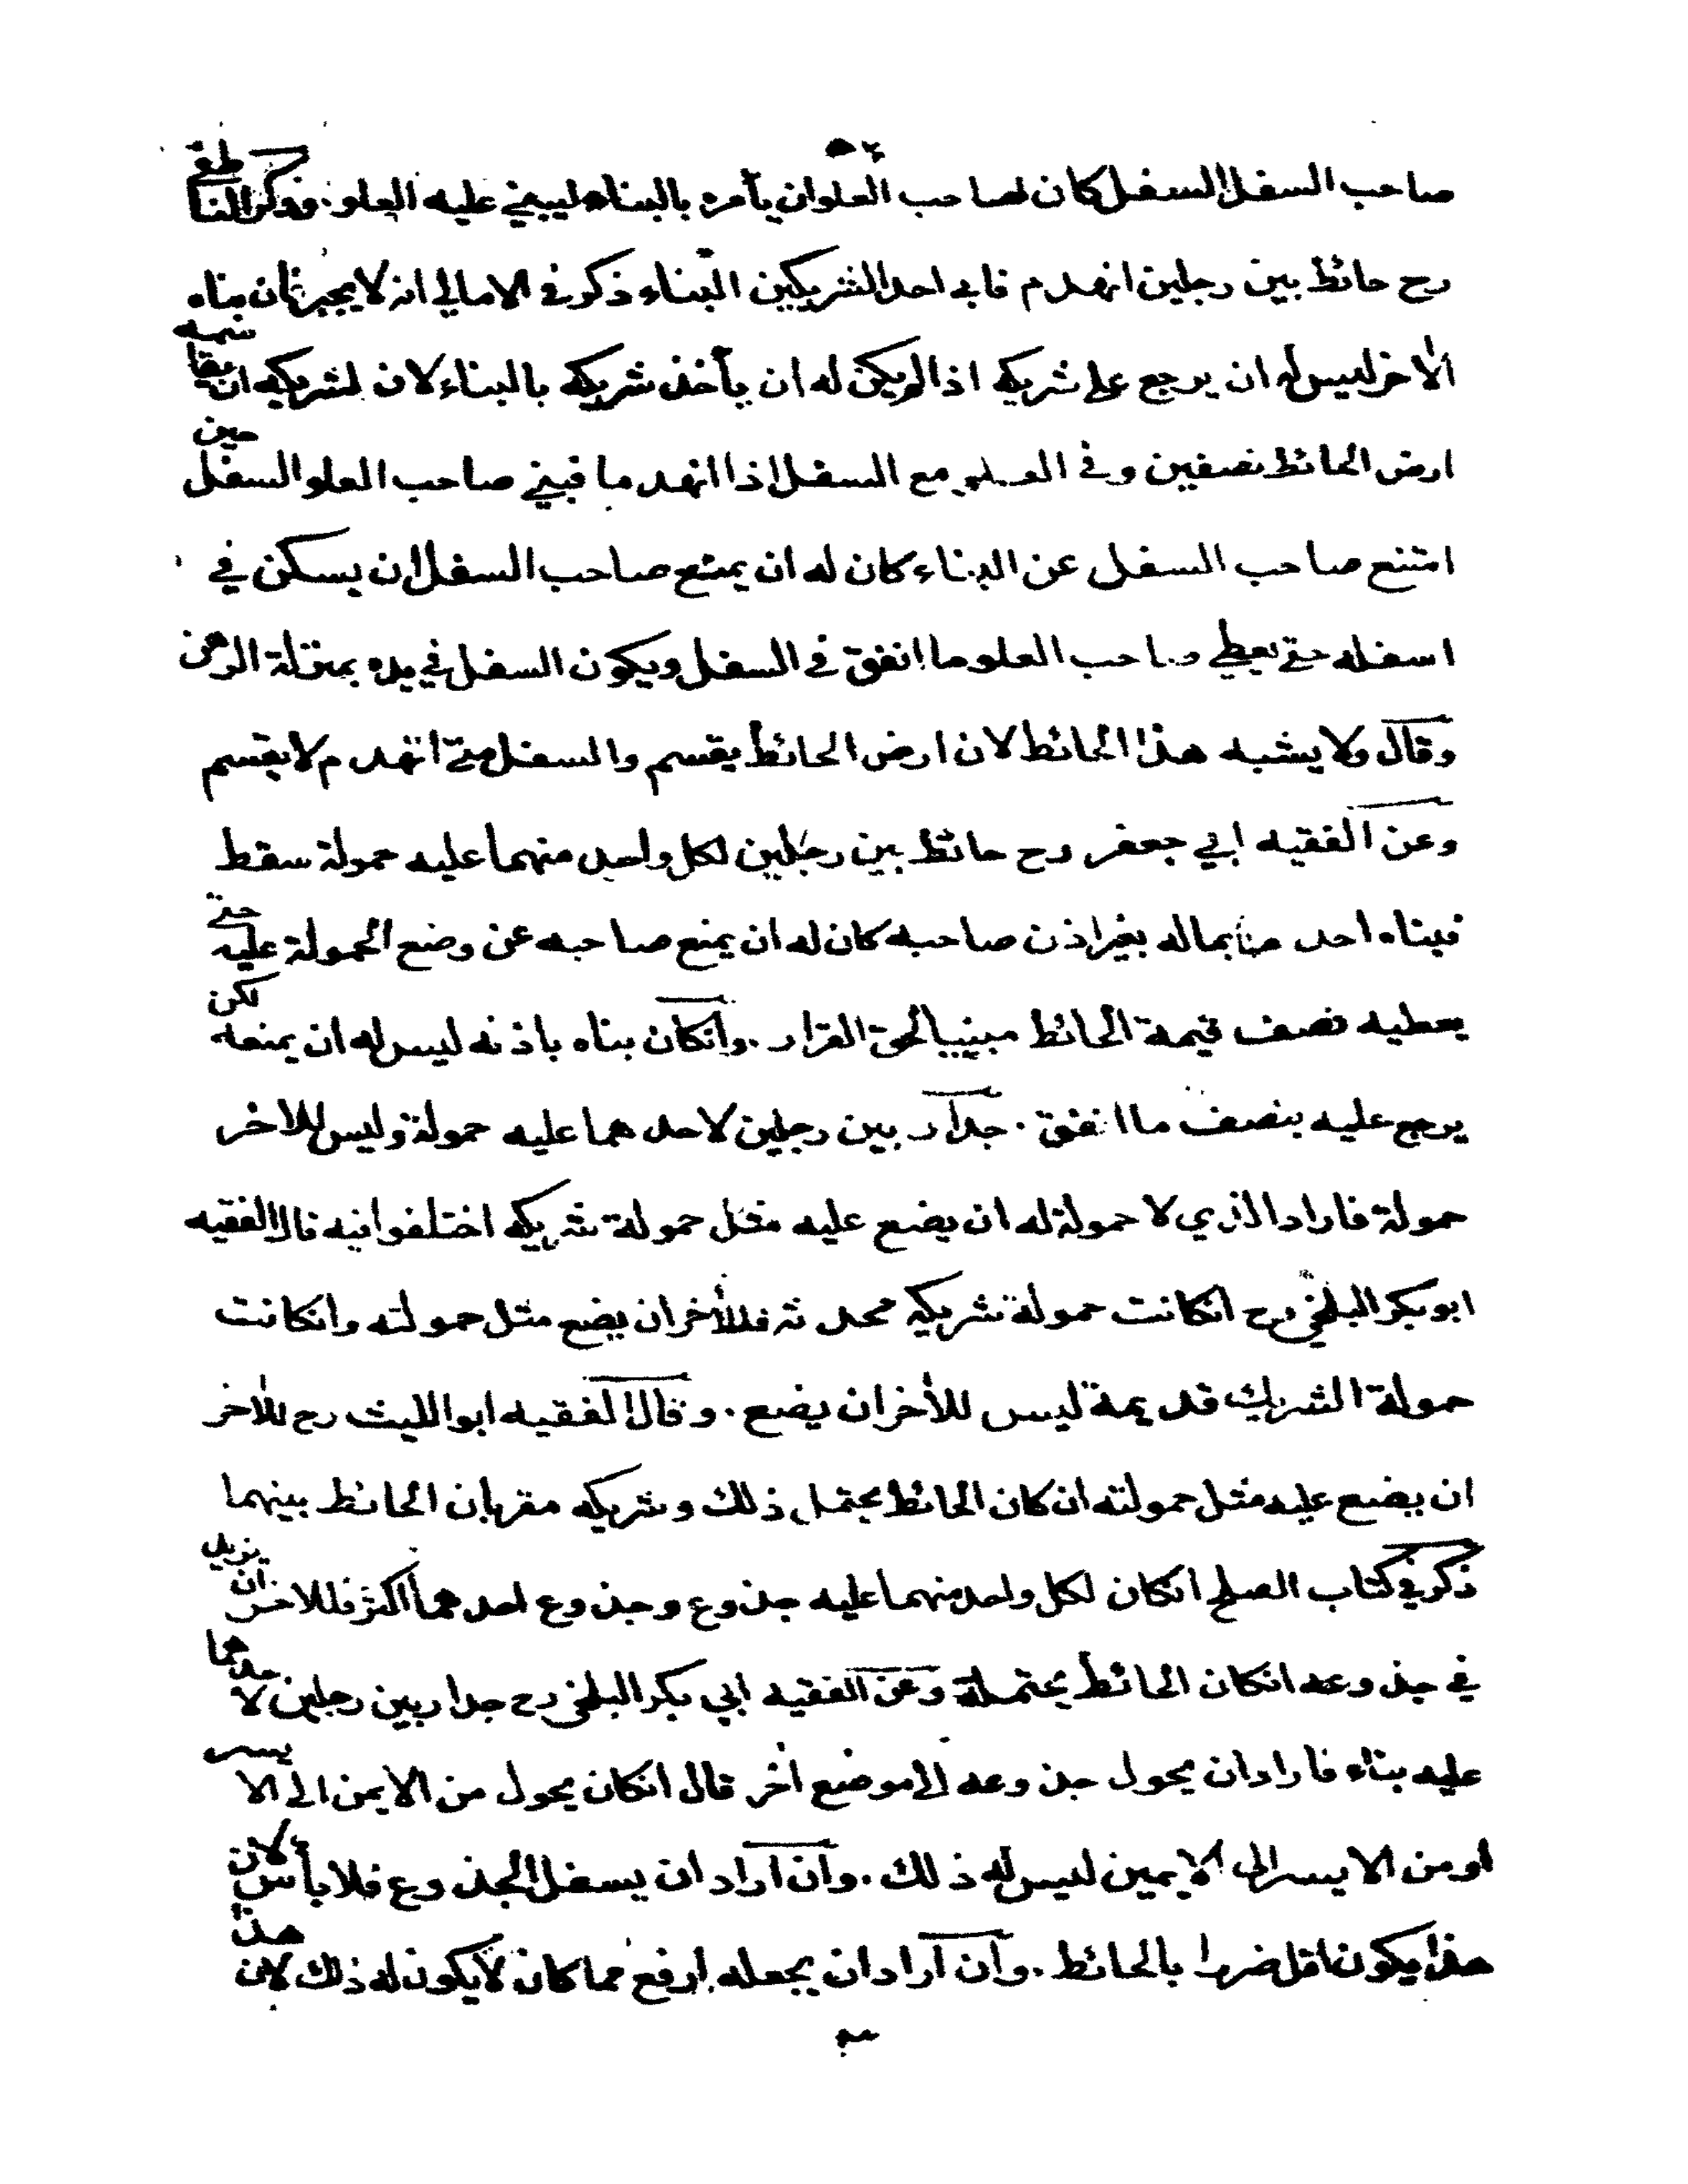 صاحب السفل السفل كان لصاحب العلو ان يأمره بالبناء ليبني عليه العلو . وذكر الناطفي
رح حائط بين رجلين انهدم فابى احد الشريكين البناء ذكر في الامالي انه لا يجبر فان بناه
الاخر ليس له ان يرجع على شريكه اذا لم يكن له ان يأخذ شريكه بالبناء لان لشريكه ان يقاسمه
ارض الحائط نصفين وفي العلو مع السفل اذا انهدما فبنى صاحب العلو السفل حين
امتنع صاحب السفل عن البناء كان له ان يمنع صاحب السفل ان يسكن في
اسفله حتى يعطي صاحب العلو ما انفق في السفل ويكون السفل في يده بمنزلة الرهن
وقال ولا يشبه هذا الحائط لان ارض الحائط يقسم والسفل متى انهدم لا يقسم
وعن الفقيه ابي جعفر رح حائط بين رجلين لكل واحد منهما عليه حمولة سقط
فبناه احد بماله بغير اذن صاحبه كان له ان يمنع صاحبه عن وضع الحمولة عليه حتى
يعطيه نصف قيمة الحائط مبنيا لحق القرار . وانكان بناه باذنه ليس له ان يمنعه لكن
يرجع عليه بنصف ما انفق . جدار بين رجلين لاحدهما عليه حمولة وليس للاخر
حمولة فاراد الذي لا حمولة له ان يضع عليه مثل حمولة شريكه اختلفوا فيه قال الفقيه
ابو بكر البلخي رح انكانت حمولة شريكه محدثة فللآخر ان يضع مثل حمولته وانكانت
حمولة الشريك قديمة ليس للآخر ان يضع . وقال الفقيه ابو الليث رح للآخر
ان يضع عليه مثل حمولته ان كان الحائط يحتمل ذلك وشريكه مقر بان الحائط بينهما
ذكر في كتاب الصلح انكان لكل واحد منهما عليه جذوع وجذوع احدهما اكثر فللاخر ان يزيد
في جذوعه انكان الحائط يحتمله وعن الفقيه ابي بكر البلخي رح جدار بين رجلين لاحدهما
عليه بناء فاراد ان يحول جذوعه الى موضع آخر قال انكان يحول من الايمن الى الايسر
او من الايسر الى الايمين ليس له ذلك . وان اراد ان يسفل الجذوع فلا بأس لان
هذا يكون اقل ضررا بالحائط . وان اراد ان يجعله ارفع مما كان لا يكون له ذلك لان هذا